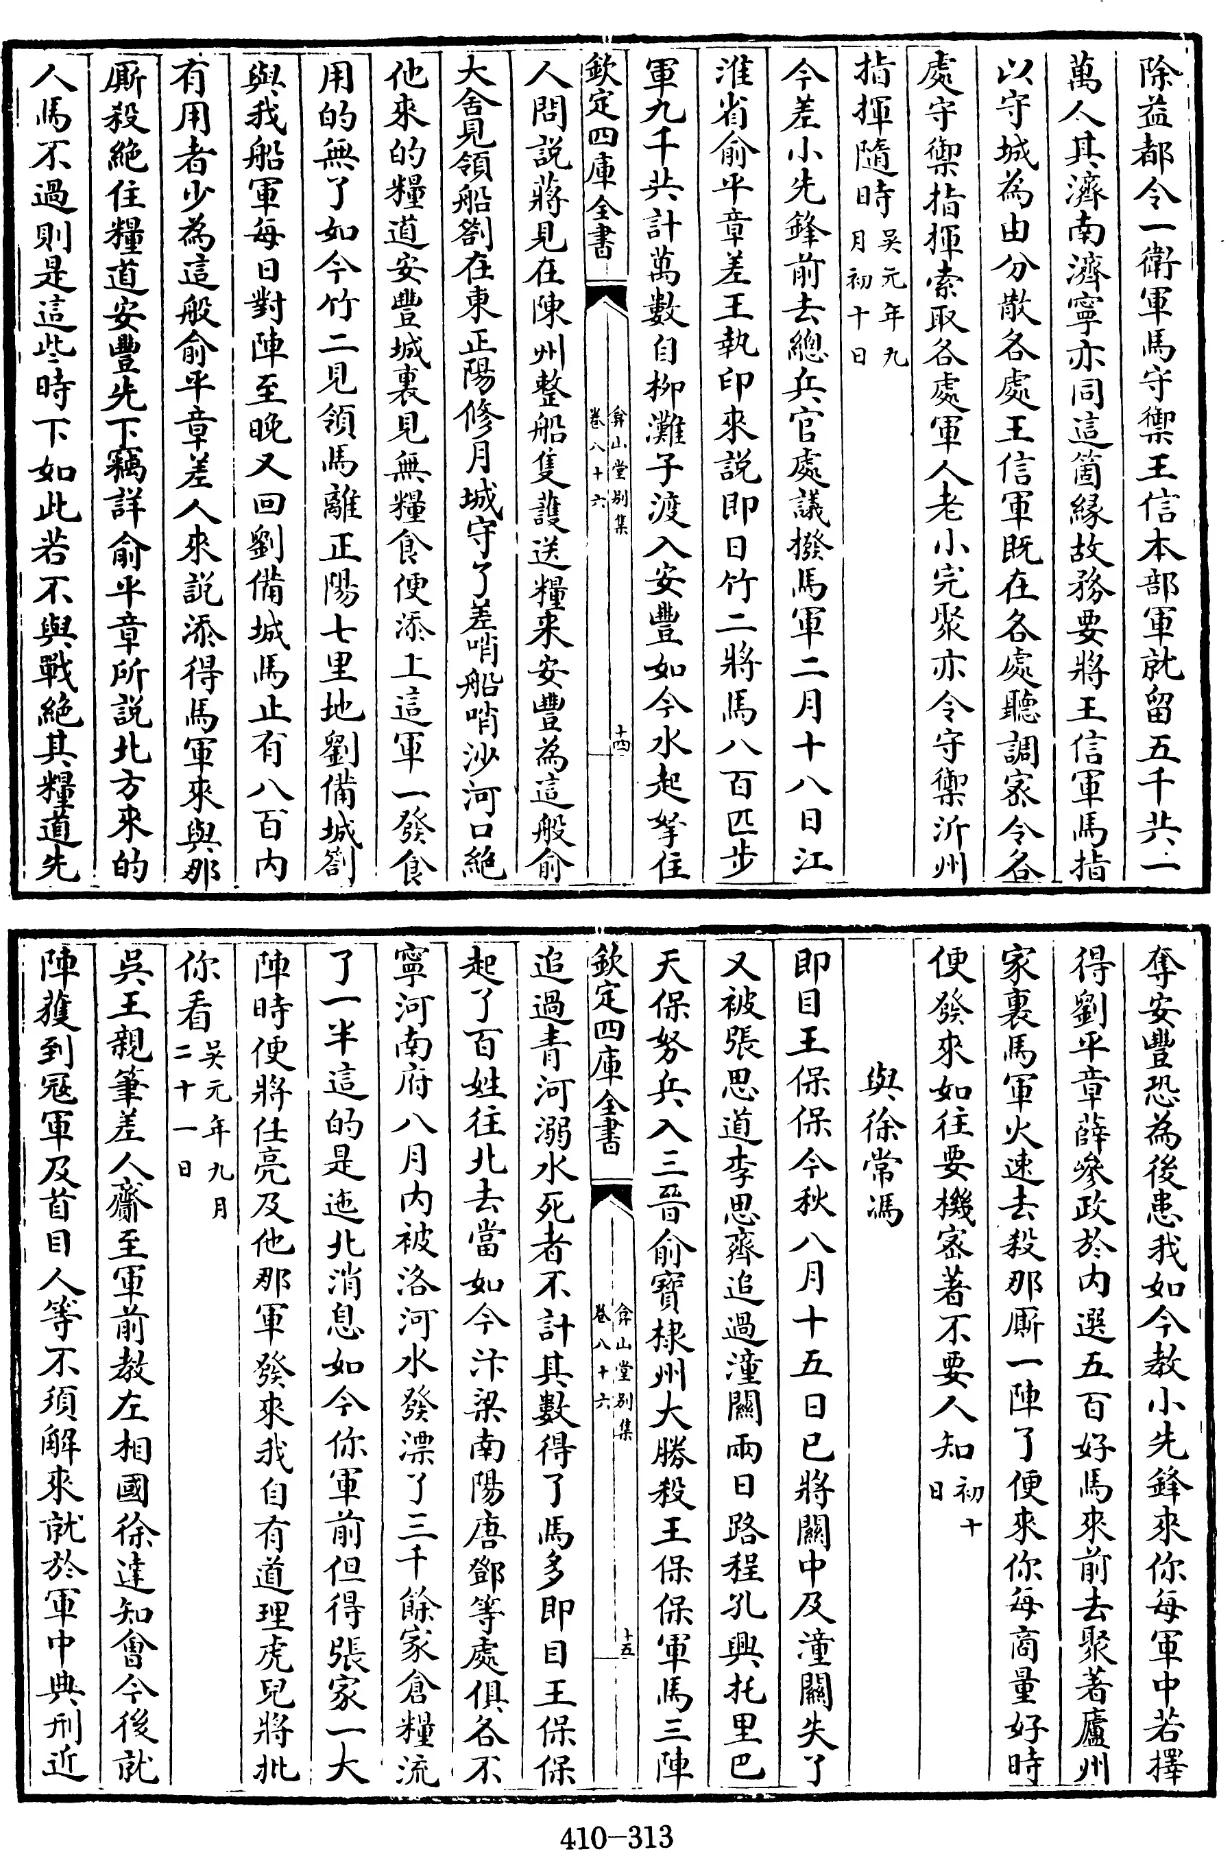 除益都令一衛軍馬守禦王信本部軍就留五千共一
萬人其濟南濟寧亦同這箇縁故務要將王信軍馬指
以守城為由分散各處王信軍既在各處聽調宻令各
處守禦指揮索取各處軍人老小完聚亦令守禦沂州
指揮隨時吳元年九月初十日
今差小先鋒前去總兵官處議撥馬軍二月十八日江
淮省俞平章差王執印來説即日竹二將馬八百匹步
軍九千共計萬數自柳灘子渡入安豐如今水起拏住
欽定四庫全書
弇山堂别集
卷八十六
十四
人問説蔣見在陳州整船隻護送糧来安豐為這般俞
大舍見領船劄在東正陽修月城守了差哨船哨沙河口絶
他來的糧道安豐城裏見無糧食便添上這軍一發食
用的無了如今竹二見領馬離正陽七里地劉備城劄
與我船軍每日對陣至晩又回劉備城馬止有八百内
有用者少為這般俞平章差人來説添得馬軍來與那
厮殺絶住糧道安豐先下竊詳俞平章所説北方來的
人馬不過則是這些時下如此若不與戰絶其糧道先
奪安豐恐為後患我如今教小先鋒來你每軍中若擇
得劉平章薛參政於内選五百好馬來前去聚著廬州
家裏馬軍火速去殺那厮一陣了便來你每商量好時
便發來如往要機宻著不要人知初十日
與徐常馮
即目王保保今秋八月十五日已將關中及潼關失了
又被張思道李思齊追過潼關兩日路程孔興托里巴
天保努兵入三晉俞寶棣州大勝殺王保保軍馬三陣
欽定四庫全書
弇山堂别集
卷八十六
十五
追過青河溺水死者不計其數得了馬多即目王保保
起了百姓往北去當如今汴梁南陽唐鄧等處俱各不
寧河南府八月内被洛河水發漂了三千餘家倉糧流
了一半這的是迤北消息如今你軍前但得張家一大
陣時便將仕亮及他那軍發來我自有道理虎兒將批
你看吳元年九月二十一日
吳王親筆差人齎至軍前教左相國徐達知會今後就
陣獲到冦軍及首目人等不須解來就於軍中典刑近
410-313